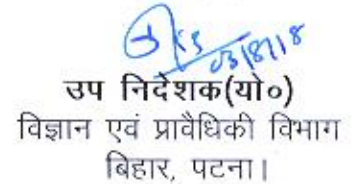 03/8/18
उप निदेशक(यो०)
विज्ञान एवं प्रावैधिकी विभाग
बिहार, पटना।